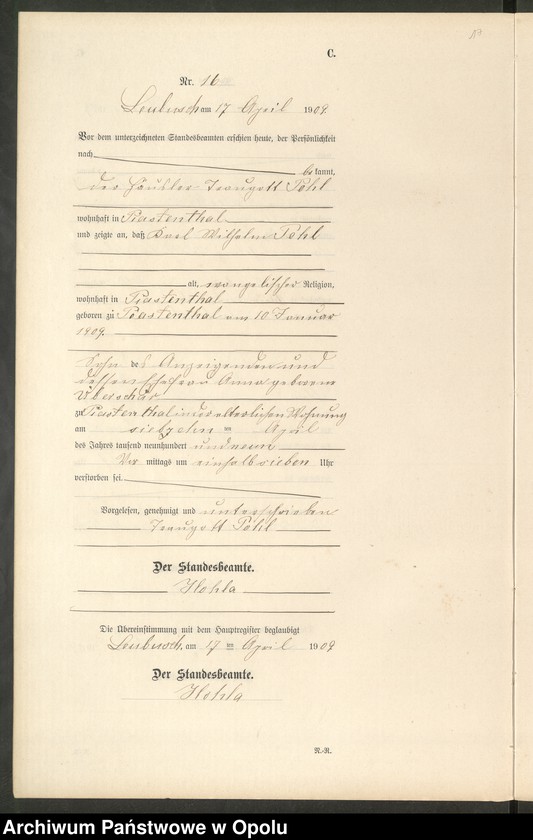 C.
Nr. 16
Leubusch am 17 April 1909.
Vor dem unterzeichneten Standesbeamten erschien heute, der Persönlichkeit
nach
be kannt,
der Häusler Traugott Pohl
wohnhaft in Piastenthal
und zeigte an, daß Karl Wilhelm Pohl
alt, evangelischer Religion,
wohnhaft in Piastenthal
geboren zu Piastenthal am 10. Januar
1909.
Sohn des Anzeigenden und
dessen Ehefrau Anna geborene
Überschär
zu Piastenthal in der elterlichen Wohnung
am siebzehnten April
des Jahres tausend neunhundert und neun
Vor mittags um einhalb sieben Uhr
verstorben sei.
Vorgelesen, genehmigt und unterschrieben
Traugott Pohl
Der Standesbeamte.
Die Übereinstimmung mit dem Hauptregister beglaubigt
Leubusch, am 17 ten April 1909
Der Standesbeamte.
N.-R.
Archiwum Państwowe w Opolu